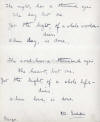 The night has a thousand eyes
The day but one
Yet the light, of a whole world-
dies
When day, is done.
a thousand eyes
The heart but one.
Yet the light of a whole life-
dies
when love, is done.